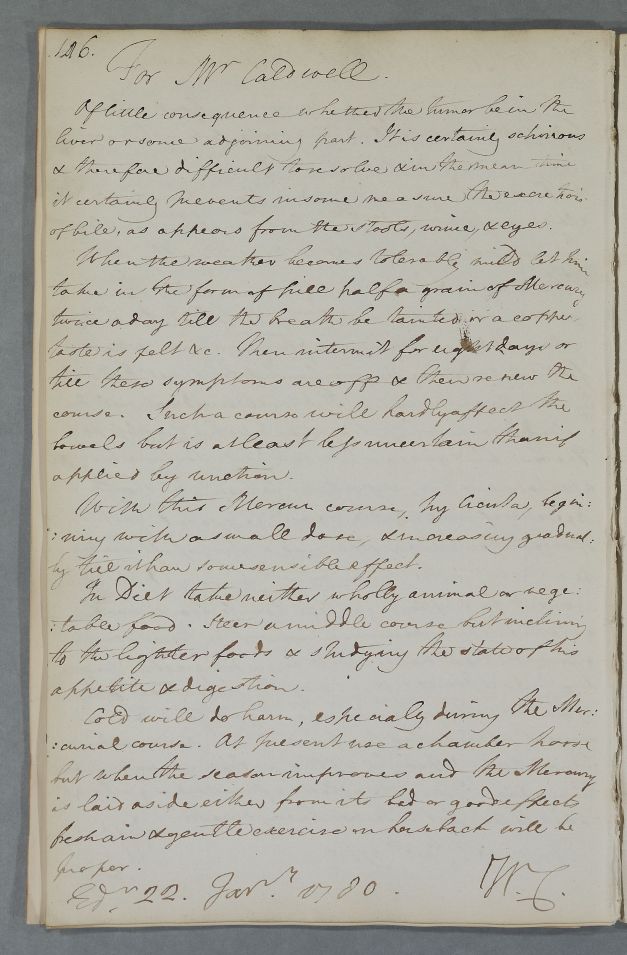 126.
For Mr Caldwell.
Of little consequence whether the tumor be in the
liver or some adjoining part. It is certainly schirrous
& therefore difficult to resolve & in the mean time
it certainly prevents in some measure the excretion
of bile, as appears from the stools, urine, & eyes.
When the weather becomes tolerably mild let him
take in the form of pill half a grain of Mercury
twice a day till the breath be tainted or a copper
taste is felt &c. Then intermit for eight days or
till these symptoms are off & then renew the
course. Such a course will hardly affect the
bowels but is at least less uncertain than if
applied by unction.
With this Mercurl course, try Cicuta, begin:
:ning with a small dose, & increasing gradual:
:ly till it has some sensible effect.
In Diet take neither wholly animal or vege:
:table food. Steer a middle course but inclining
to the lighter foods & studying the state of his
appetite & digestion.
Cold will do harm, especially during the Mer:
:curial course. At present use a chamber horse
but when the season improves and the Mercury
is laid aside either from its bad or good effects
fresh air & gentle exercise on horseback will be
proper.
Edr 22. Janry 1780. W. C.